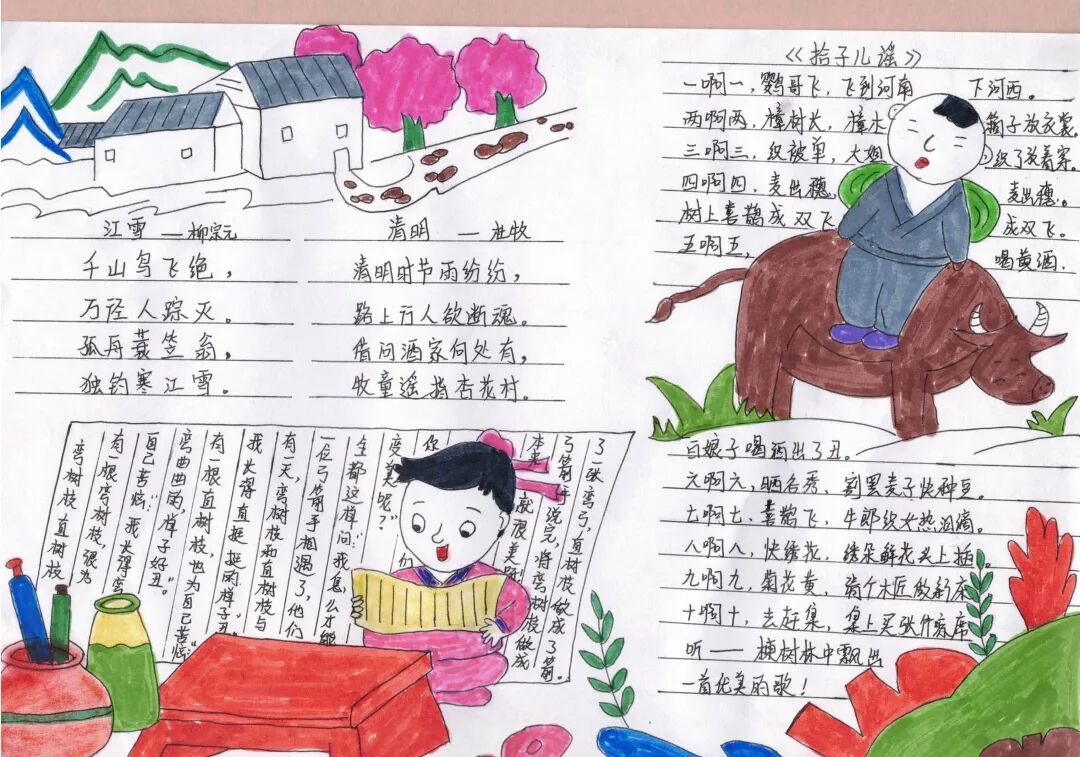 江雪 —柳宗元
千山鸟飞绝，
万径人踪灭。
孤舟蓑笠翁，
独钓寒江雪。
清明 —杜牧
清明时节雨纷纷，
路上行人欲断魂。
借问酒家何处有，
牧童遥指杏花村。
《拾子儿谣》
一啊一，鹦哥飞，飞到河南 下河西。
两啊两，樟树长，樟木 箱子放衣裳。
三啊三，织被单，大姐 织了放着寒。
四啊四，麦出穗， 麦出穗。
树上喜鹊成双飞 成双飞。
五啊五， 喝黄酒，
白娘子喝酒出了丑。
六啊六，晒名秀，割黑麦子快种豆。
七啊七，喜鹊飞，牛郎织女热泪滴。
八啊八，快绣花，绣朵鲜花头上插。
九啊九，菊花黄，请个木匠做新床
十啊十，去赶集，集上买张竹席
听——楝树林中飘出
一首优美的歌！
弯树枝 直树枝
有一根弯树枝，很为
自己苦恼：“我长得弯
弯曲曲的，样子好丑。”
有一根直树枝，也为自己苦恼：
我长得直挺挺的，样子丑。
有一天，弯树枝和直树枝与
一位弓箭手相遇了，他们
全都这样问：“我怎么才能
变美呢？”
你 们
本 就很美
弓箭手说完，将弯树枝做成
了一张弯弓，直树枝做成了箭。